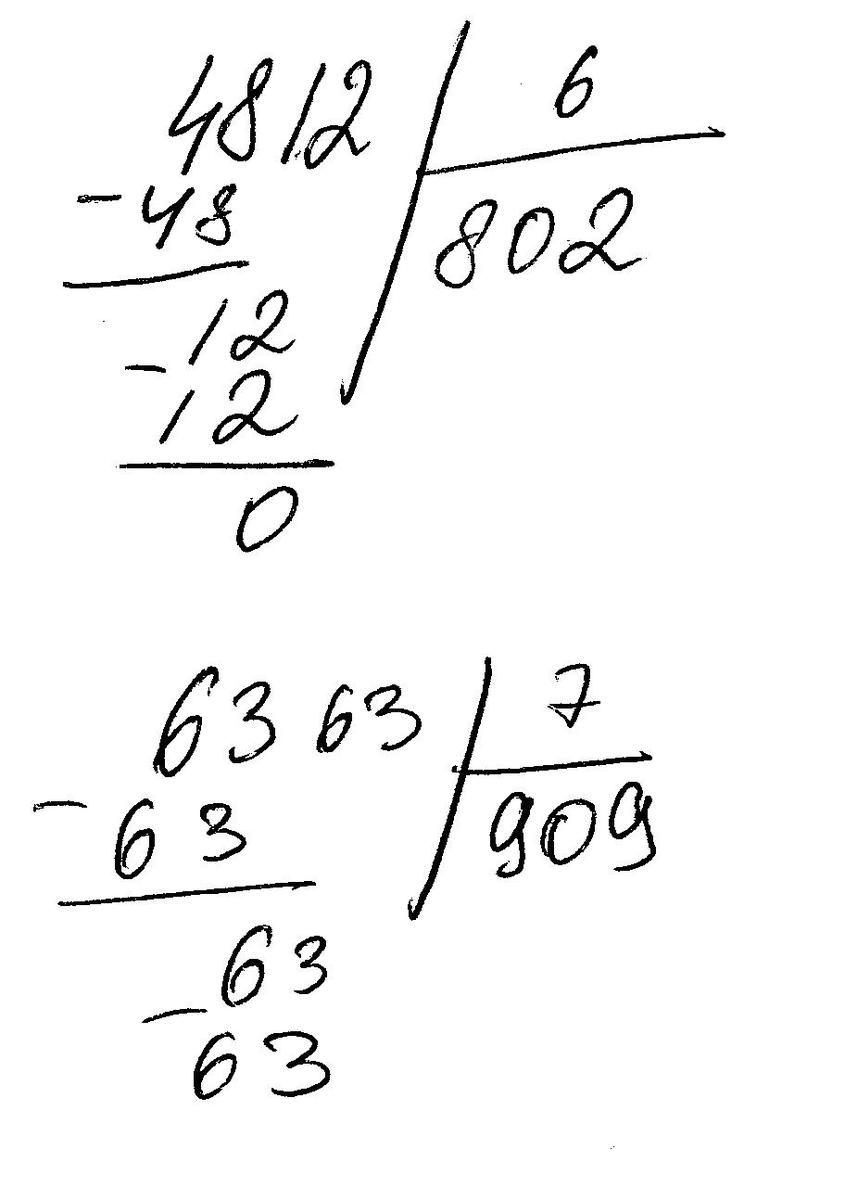 4812 6
-48 802
12
-12
0
6363 7
-63 909
63
-63